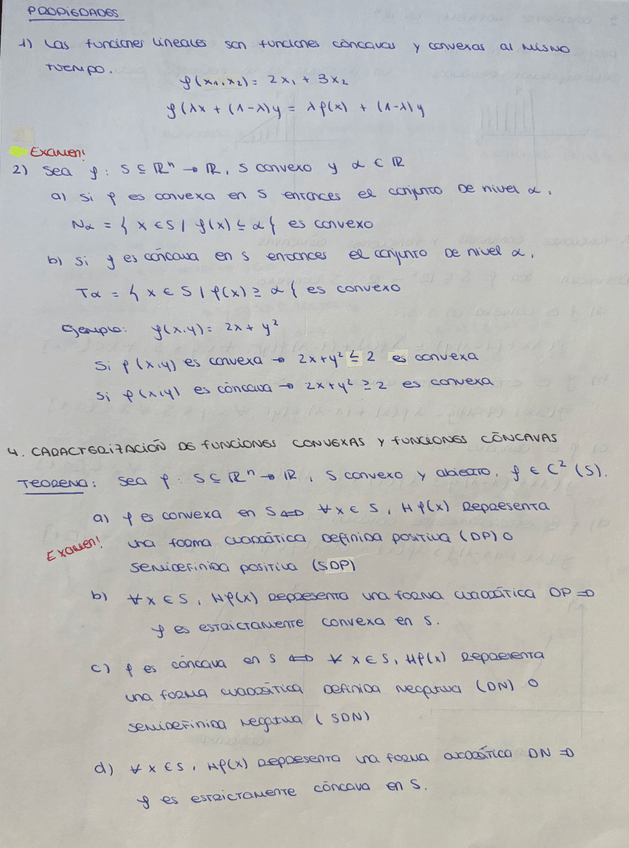 PROPIEDADES
1) Las funciones lineales son funciones cóncavas y convexas al mismo
tiempo.
f(x₁,x₂) = 2x₁ + 3x₂
f(λx + (1-λ)y = λf(x) + (1-λ)y
Examen!
2) Sea f: S ⊆ ℝⁿ → ℝ, S convexo y α ⊂ ℝ
a) Si f es convexa en S entonces el conjunto de nivel α,
Nα = { x ∈ S / f(x) ≤ α { es convexo
b) Si f es cóncava en S entonces el conjunto de nivel α,
Tα = { x ∈ S / f(x) ≥ α { es convexo
Ejemplo: f(x,y) = 2x + y²
Si f(x,y) es convexa → 2x + y² ≤ 2 es convexa
Si f(x,y) es cóncava → 2x + y² ≥ 2 es convexa
4. CARACTERIZACIÓN DE FUNCIONES CONVEXAS Y FUNCIONES CÓNCAVAS
TEOREMA: Sea f: S ⊆ ℝⁿ → ℝ, S convexo y abierto, f ∈ C² (S).
a) f es convexa en S ⇔ ∀x ∈ S, Hf(x) Representa
Examen! una forma cuadrática definida positiva (DP) o
semidefinida positiva (SDP)
b) ∀x ∈ S, Hf(x) Representa una forma cuadrática DP ⇒
f es estrictamente convexa en S.
c) f es cóncava en S ⇔ ∀ x ∈ S, Hf(x) Representa
una forma cuadrática definida negativa (DN) o
semidefinida negativa (SDN)
d) ∀x ∈ S, Hf(x) Representa una forma cuadrática DN ⇒
f es estrictamente cóncava en S.